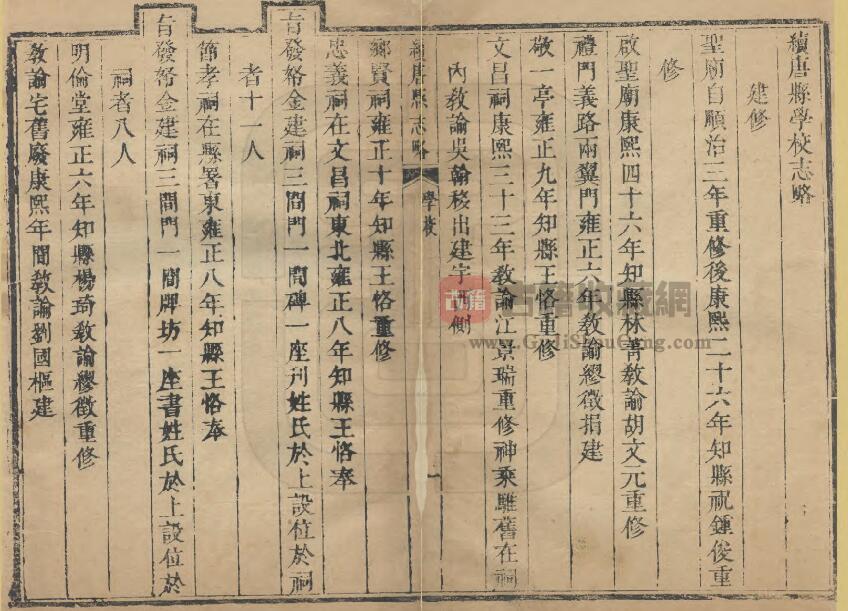 續唐縣學校志略
建修
聖廟自順治二年重修後康熙二十六年知縣祝鍾俊重
修
啟聖廟康熙四十六年知縣林菁教諭胡文元重修
禮門義路兩翼門雍正六年教諭繆徵捐建
敬一亭雍正九年知縣王恪重修
文昌祠康熙三十三年教諭江景瑞重修神乘騅舊在祠
內教諭吳翰移出建宇西側
續唐縣志略
學校
一
鄉賢祠雍正十年知縣王恪重修
忠義祠在文昌祠東北雍正八年知縣王恪奉
旨發帑金建祠三間門一間碑一座刋姓氏於上設位於祠
者十一人
節孝祠在縣署東雍正八年知縣王恪奉
旨發帑金建祠三間門一間牌坊一座書姓氏於上設位於
祠者八人
明倫堂雍正六年知縣楊琦教諭繆徵重修
教諭宅舊廢康熙年間教諭劉國樞建
古籍
古籍收藏網
www.GuJiShouCang.com